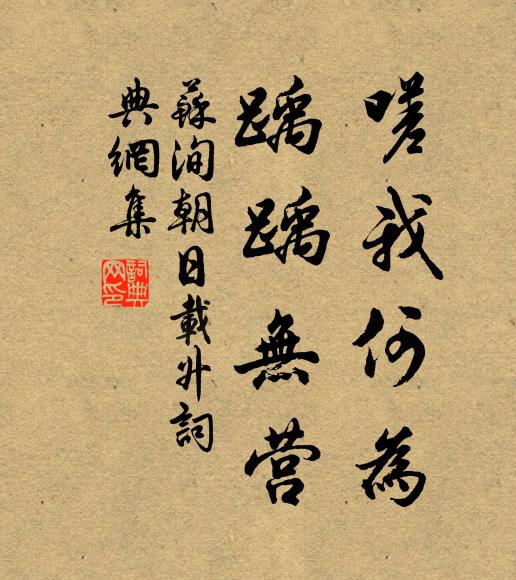 嗟我何為
踽踽無营
蘇洵朝日載升詞
典網集
詞典
网印